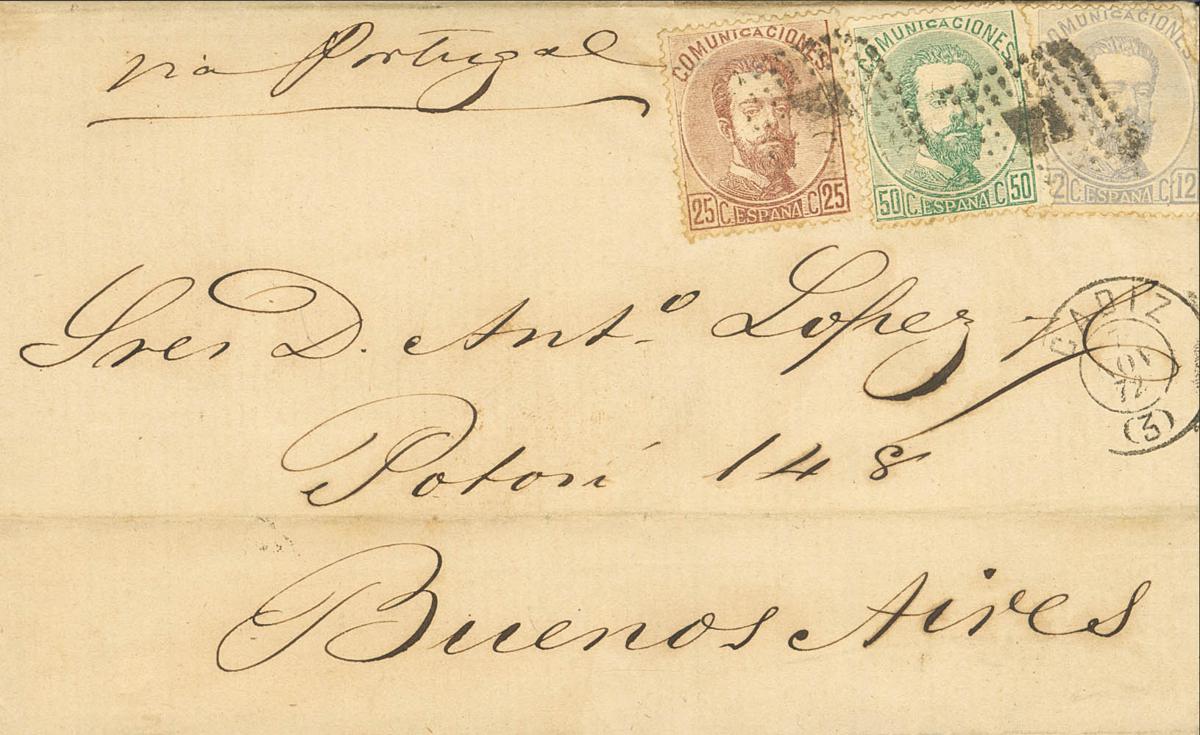 via Portugal
COMUNICACIONES
25 C. ESPAÑA C 25
COMUNICACIONES
50 C. ESPAÑA C 50
COMUNICACIONES
12 C. ESPAÑA Cs 12
Sres D. Ant.º Lopez y Cª
CADIZ
72
(3)
Potosi 148
Buenos Aires